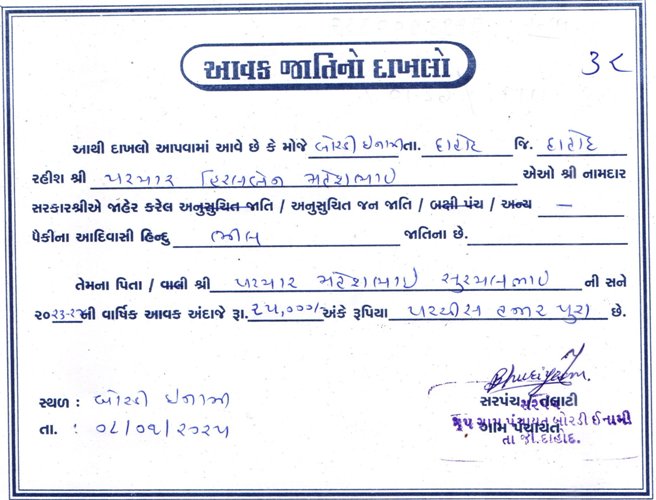 આવક જાતિનો દાખલો
૩૮
આથી દાખલો આપવામાં આવે છે કે મોજે બોરડી ઈનામી તા. દાહોદ જિ. દાહોદ
રહીશ શ્રી પરમાર હિરલબેન મહેશભાઈ એઓ શ્રી નામદાર
સરકારશ્રીએ જાહેર કરેલ અનુસુચિત જાતિ / અનુસુચિત જન જાતિ / બક્ષી પંચ / અન્ય —
પૈકીના આદિવાસી હિન્દુ ભીલ જાતિના છે.
તેમના પિતા / વાલી શ્રી પરમાર મહેશભાઈ સુરમલભાઈ ની સને
૨૦૨૩-૨૪ની વાર્ષિક આવક અંદાજે રૂા. ૨૫,૦૦૦/- અંકે રૂપિયા પચ્ચીસ હજાર પુરા છે.
સ્થળ : બોરડી ઈનામી
તા. : ૦૮/૦૧/૨૦૨૫
સરપંચ / તલાટી
સરપંચ
ગ્રામ પંચાયત
ગ્રામ પંચાયત બોરડી ઈનામી
તા જી. દાહોદ.